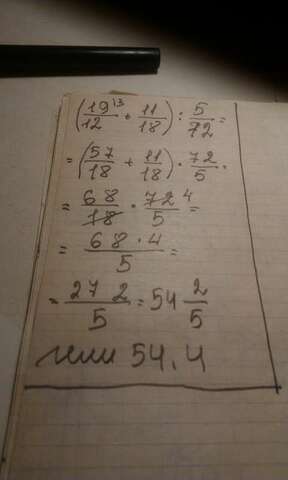 (19^13/12 + 11/18) : 5/72 =
= (57/18 + 11/18) · 72/5 ·
= 68/18 · 72^4/5 =
= 68 · 4/5 =
= 272/5 = 54 2/5
или 54.4